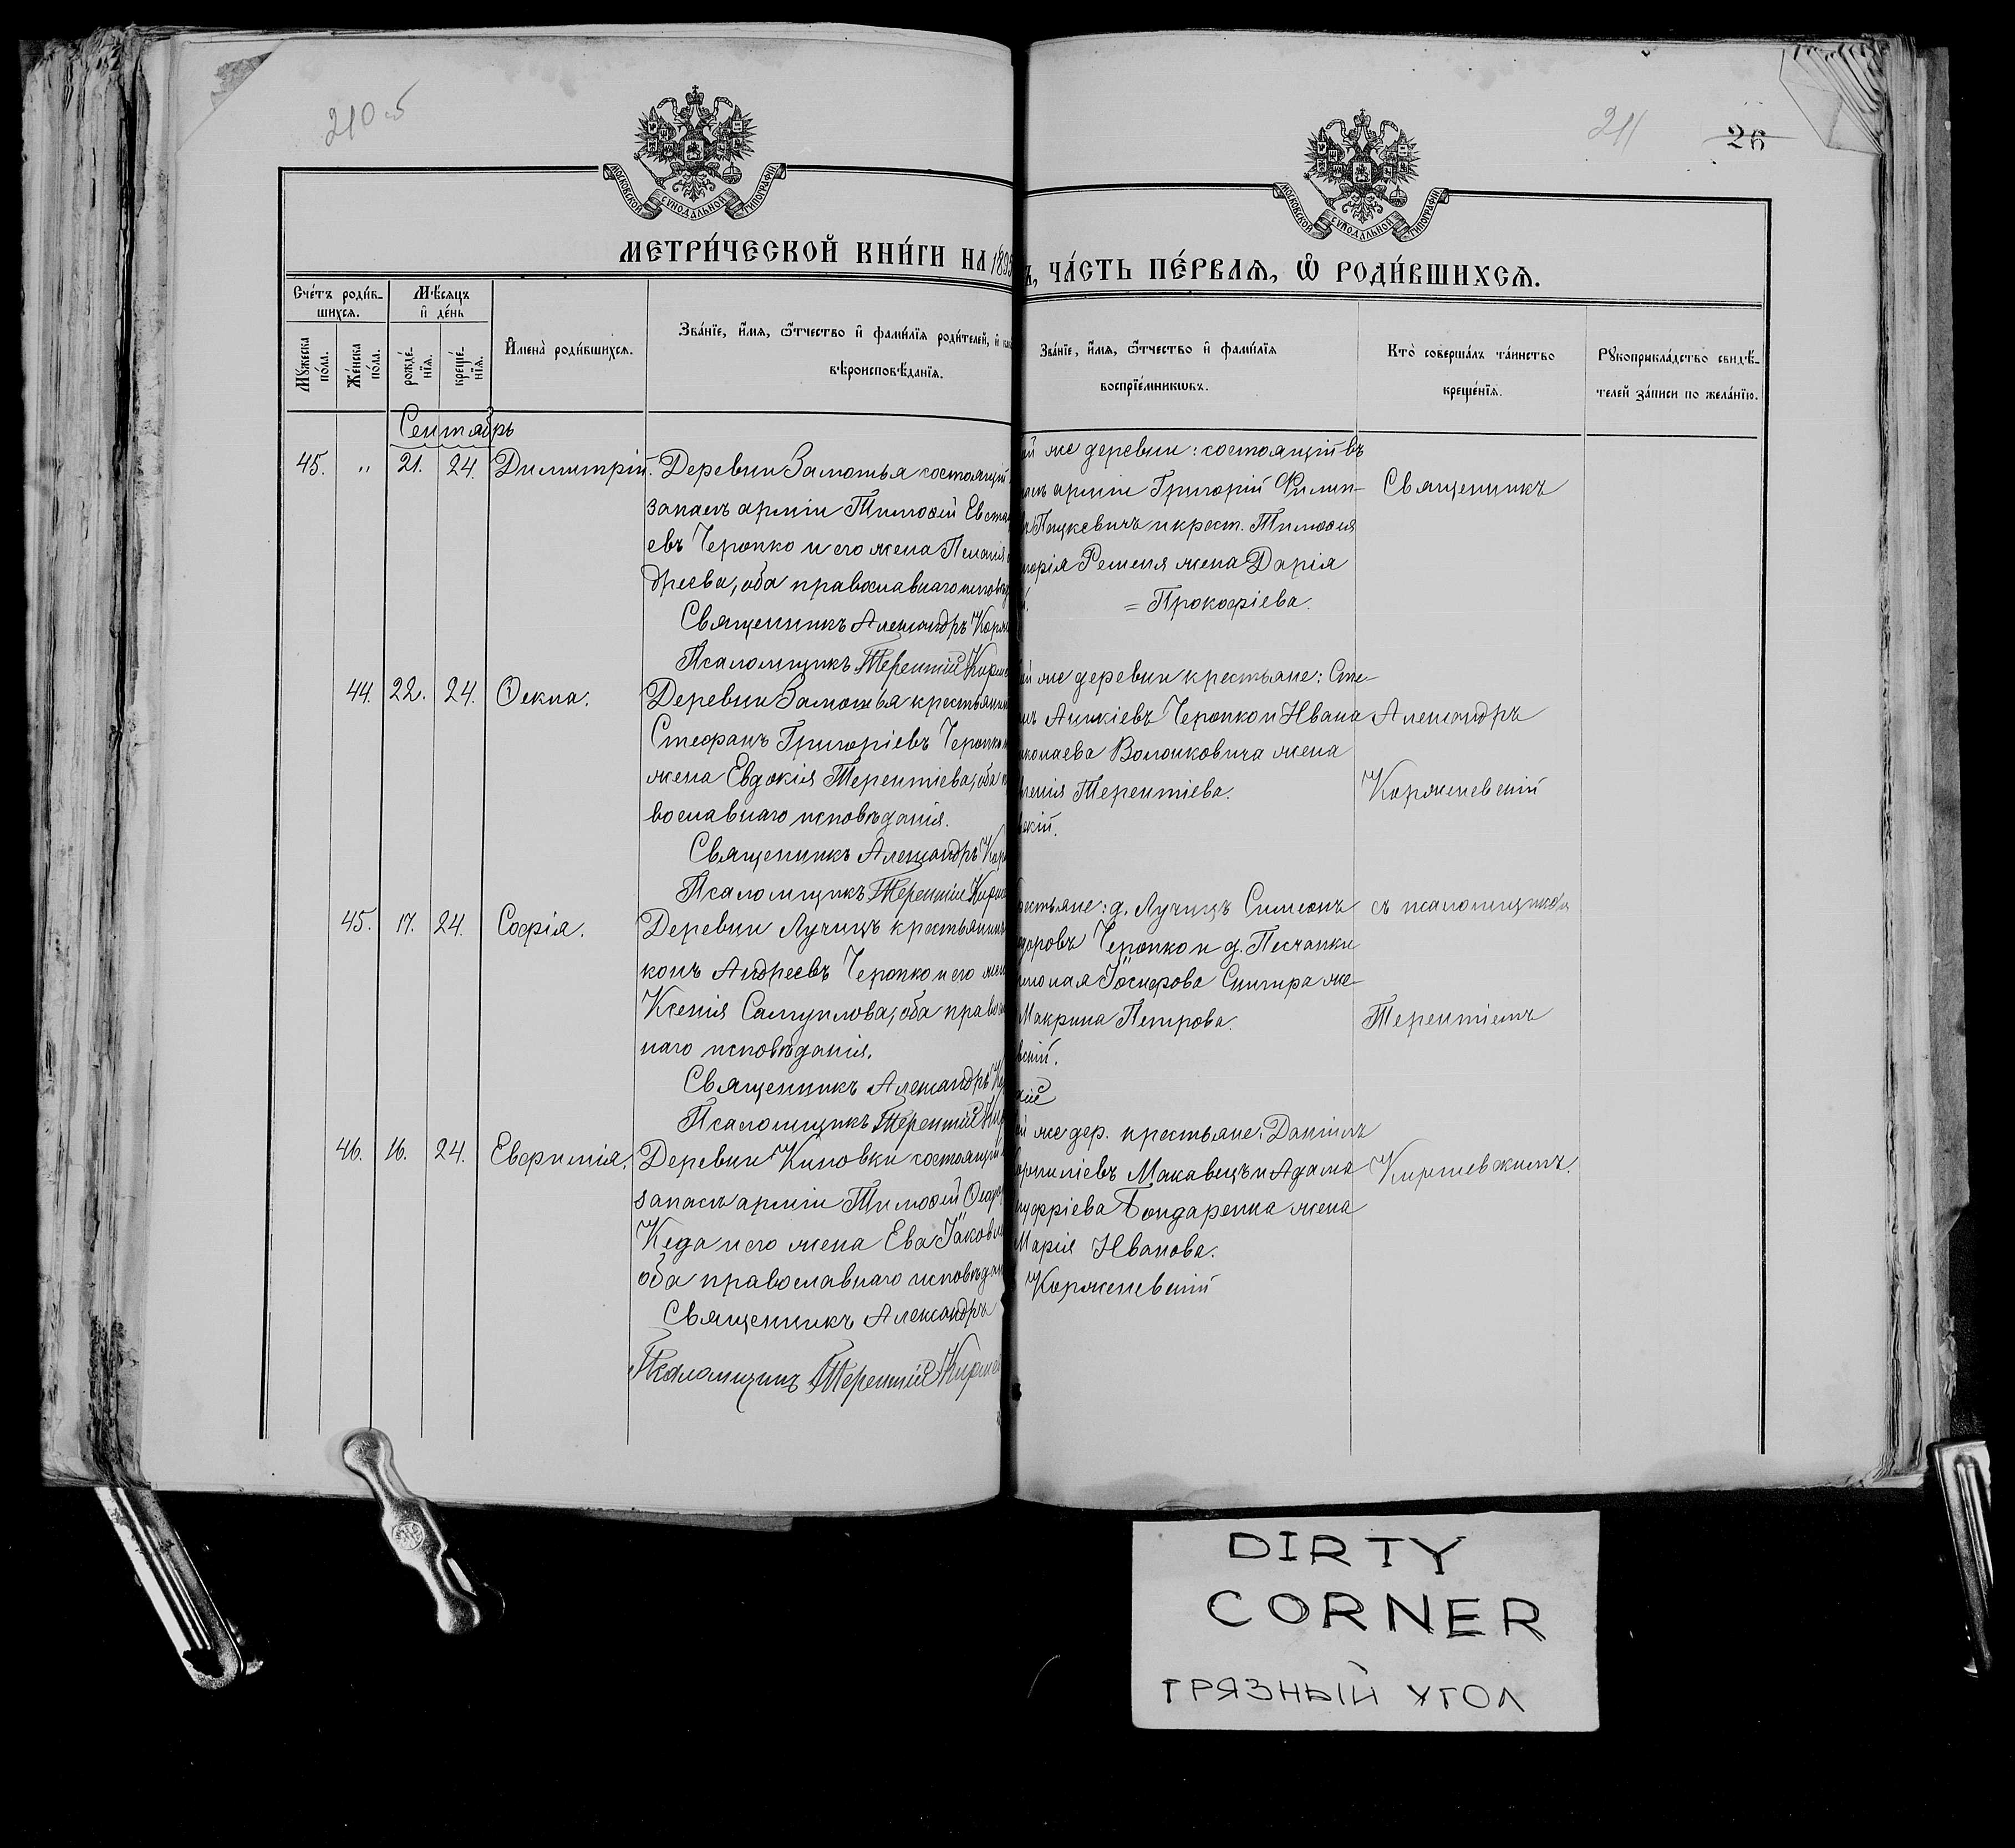 210об
211
26
МОСКОВСКОЙ СУНОДАЛЬНОЙ ТИПОГРАФІИ
МОСКОВСКОЙ СУНОДАЛЬНОЙ ТИПОГРАФІИ
МЕТРИ́ЧЕСКОЙ КНИ́ГИ НА 1895
ъ, ЧА́СТЬ ПЕ́РВАѦ, Ѡ҆ РОДИ́ВШИХСѦ.
Сче́тъ роди́в-
шихся.
Мѣ́сяцъ
и҆ де́нь
Му́жеска
по́ла.
Же́нска
по́ла.
рожде́-
нїя.
креще́-
нїя.
И҆мена̀ роди́вшихся.
Зва́нїе, и҆́мя, ѻ҆́тчество и҆ фами́лїя роди́телей, и҆
вѣроисповѣ́данїя.
Зва́нїе, и҆́мя, ѻ҆́тчество и҆ фами́лїя
воспрїе́мникѡвъ.
Кто̀ соверша́лъ та́инство
креще́нїя.
Рꙋкоприкла́дство свидѣ́-
телей за́писи по жела́нїю.
Сентябрь
45. " 21. 24. Димитрій. Деревни Замостья состоящій
запасѣ арміи Тимоѳей Евста
евъ Черопко и его жена Пелагія
дреева, оба православнаго исповѣд
Священникъ Александръ Корж
Псаломщикъ Терентій Кирже
ой же деревни: состоящій въ
пасѣ арміи Григорій Филип-
въ Пацкевичъ и крест. Тимоѳея
горія Ременя жена Дарія
= Прокофіева.
Священникъ
44. 22. 24. Ѳекла. Деревни Замостья крестьянинъ
Стефанъ Григоріевъ Черопко
жена Евдокія Терентіева, оба п
вославнаго исповѣданія.
Священникъ Александръ Кор
Псаломщикъ Терентій Кирже
ой же деревни крестьяне: Сте-
Аникіевъ Черопко и Ивана
иколаева Волчковича жена
Терентіева.
вскій.
Александръ
Корженевскій
45. 17. 24. Софія. Деревни Лучицъ крестьянинъ
конъ Андреевъ Черопко и его жен
Ксенія Самуилова, оба правосл
наго исповѣданія.
Священникъ Александръ Ко
Псаломщикъ Терентій Кир
рестьяне: д. Лучицъ Симеонъ
доровъ Черопко и д. Песчанки
Іосифова Снигира же-
Макрина Петрова.
вскій.
съ псаломщикомъ
Терентіемъ
46. 16. 24. Евфимія. Деревни Кновки состоящій
запасѣ арміи Тимоѳей Ѳеодо
Кеда и его жена Ева Іаковле
оба православнаго исповѣдан
Священникъ Александръ
Псаломщикъ Терентій Кирже
ой же дер. крестьяне: Даніилъ
орниліевъ Макавецъ и Адама
нуфріева Бондаренка жена
Марія Иванова.
Корженевскій
Киржевскимъ.
DIRTY
CORNER
ГРЯЗНЫЙ УГОЛ